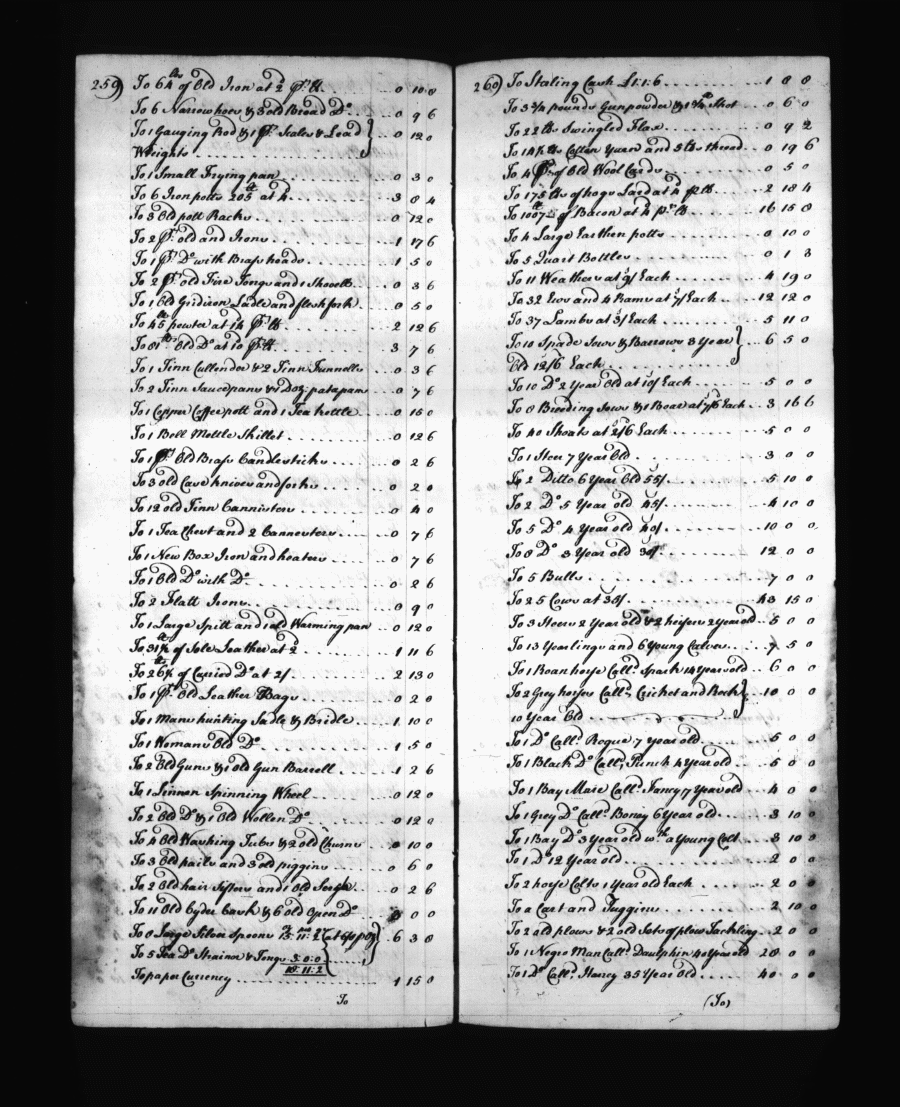 259
To 64 lbs of Old Iron at 2 p. lb . . . 0 10 8
To 6 Narrow hoes & 3 old Broad Do . . . 0 9 6
To 1 Gauging Rod & 1 pr. Scales & Lead
Weights . . . 0 12 0
To 1 Small Frying pan . . . 0 3 0
To 6 Iron potts 205 lb at 4 . . . 3 8 4
To 3 Old pott Racks . . . 0 12 0
To 2 pr. old and Irons . . . 1 17 6
To 1 pr. Do with Brass heads . . . 1 5 0
To 2 pr. old Fire Tongs and 1 Shovell . . . 0 3 6
To 1 Old Gridiron Ladle and flesh fork . . . 0 5 0
To 45 lb pewter at 14 pr. lb . . . 2 12 6
To 81 lb Old Do at 10 pr. lb . . . 3 7 6
To 1 Tinn Cullender & 2 Tinn Funnells . . . 0 3 6
To 2 Tinn Saucepans & 1 Doz. patapans . . . 0 7 6
To 1 Copper Coffee pott and 1 Tea kettle . . . 0 15 0
To 1 Bell Mettle Skillet . . . 0 12 6
To 1 pr. Old Brass Candlesticks . . . 0 2 6
To 3 old Case knives and forks . . . 0 2 0
To 12 old Tinn Cannisters . . . 0 4 0
To 1 Tea Chest and 2 Cannesters . . . 0 7 6
To 1 New Box Iron and heaters . . . 0 7 6
To 1 Old Do with Do . . . 0 2 6
To 2 Flatt Irons . . . 0 9 0
To 1 Large Spitt and 1 old Warming pan 0 12 0
To 31½ lb of Sole Leather at 2 . . . 1 11 6
To 26½ lb of Curried Do at 2/ . . . 2 13 0
To 1 pr. Old Leather Bags . . . 0 2 0
To 1 Mans hunting Sadle & Bridle . . . 1 10 0
To 1 Womans Old Do . . . 1 5 0
To 2 Old Guns & 1 old Gun Barrell . . . 1 2 6
To 1 Linnen Spinning Wheel . . . 0 12 0
To 2 Old Do & 1 Old Wollen Do . . . 0 12 0
To 4 Old Washing Tubs & 2 old Churns . . . 0 10 0
To 3 Old pails and 3 old piggins . . . 0 6 0
To 2 Old hair Sifters and 1 Old Serch . . . 0 2 6
To 11 Old Cyder Cask & 6 old Open Do . . . 3 0 0
To 8 Large Silver Spoons 15 . 11 . 2 at 6/8 p oz 6 3 8
To 5 Tea Do Strainer & Tongs 3:0:0
18:11:2
To paper Currency . . . 1 15 0
To
260
To Staling Cash £1:1:6 . . . 1 8 8
To 3¾ pounds Gunpowder & 1¾ lb Shot . . . 0 6 0
To 22 lbs Swingled Flax . . . 0 9 2
To 14½ lbs Cotten Yearn and 5 lbs thread . . 0 19 6
To 4 pr. of Old Wool Cards . . . 0 5 0
To 175 lbs of hogs Lard at 4 p lb . . . 2 18 4
To 1007 lb of Bacon at 4 pr. lb . . . 16 15 8
To 4 Large Earthen potts . . . 0 10 0
To 5 Quart Bottles . . . 0 1 3
To 11 Weathers at 9/ Each . . . 4 19 0
To 32 Ews and 4 Rams at 7/ Each . . . 12 12 0
To 37 Lambs at 3/ Each . . . 5 11 0
To 10 Spade Sows & Barrows 3 Year
Old 12/6 Each . . . 6 5 0
To 10 Do 2 Year Old at 10/ Each . . . 5 0 0
To 8 Breeding Sows & 1 Boar at 7/6 Each . . 3 16 6
To 40 Shoats at 2/6 Each . . . 5 0 0
To 1 Steer 7 Year Old . . . 3 0 0
To 2 Ditto 6 Year Old 55/ . . . 5 10 0
To 2 Do 5 Year old 45/ . . . 4 10 0
To 5 Do 4 Year old 40/ . . . 10 0 0
To 8 Do 3 Year old 30/ . . . 12 0 0
To 5 Bulls . . . 7 0 0
To 25 Cows at 35/ . . . 43 15 0
To 3 Steers 2 Year old & 2 heifers 2 year old . . 5 0 0
To 13 Yearlings and 6 Young Calves . . . 7 5 0
To 1 Roan horse Calld. Spark 14 Year old . . 6 0 0
To 2 Grey horses Calld. Cricket and Rock
10 Year Old . . . 10 0 0
To 1 Do Calld. Rogue 7 year old . . . 5 0 0
To 1 Black Do Calld. Punch 4 Year old . . . 5 0 0
To 1 Bay Mare Calld. Fancy 7 Year old . . . 4 0 0
To 1 Grey Do Calld. Boney 6 Year old . . . 3 10 0
To 1 Bay Do 3 Year old wth. a Young Colt . . . 3 10 0
To 1 Do 12 Year old . . . 2 0 0
To 2 horse Colts 1 Year old Each . . . 2 0 0
To a Cart and . . . 2 10 0
To 2 old plows & 2 old Sets of plow Tackling . . 2 0 0
To 1 Negro Man Calld. Daulphin 40 Year old 28 0 0
To 1 Do Calld. Harry 35 Year Old . . . 40 0 0
(To)